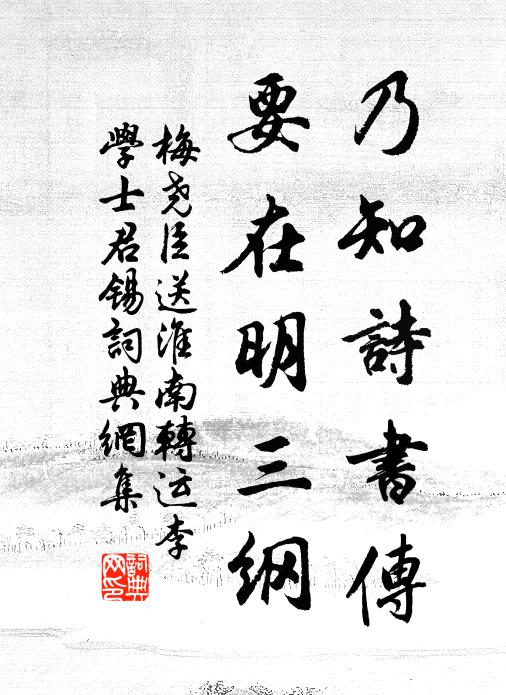 乃知詩書傳
要在明三纲
梅堯臣送淮南轉运李
學士君锡詞典網集
詞典网印